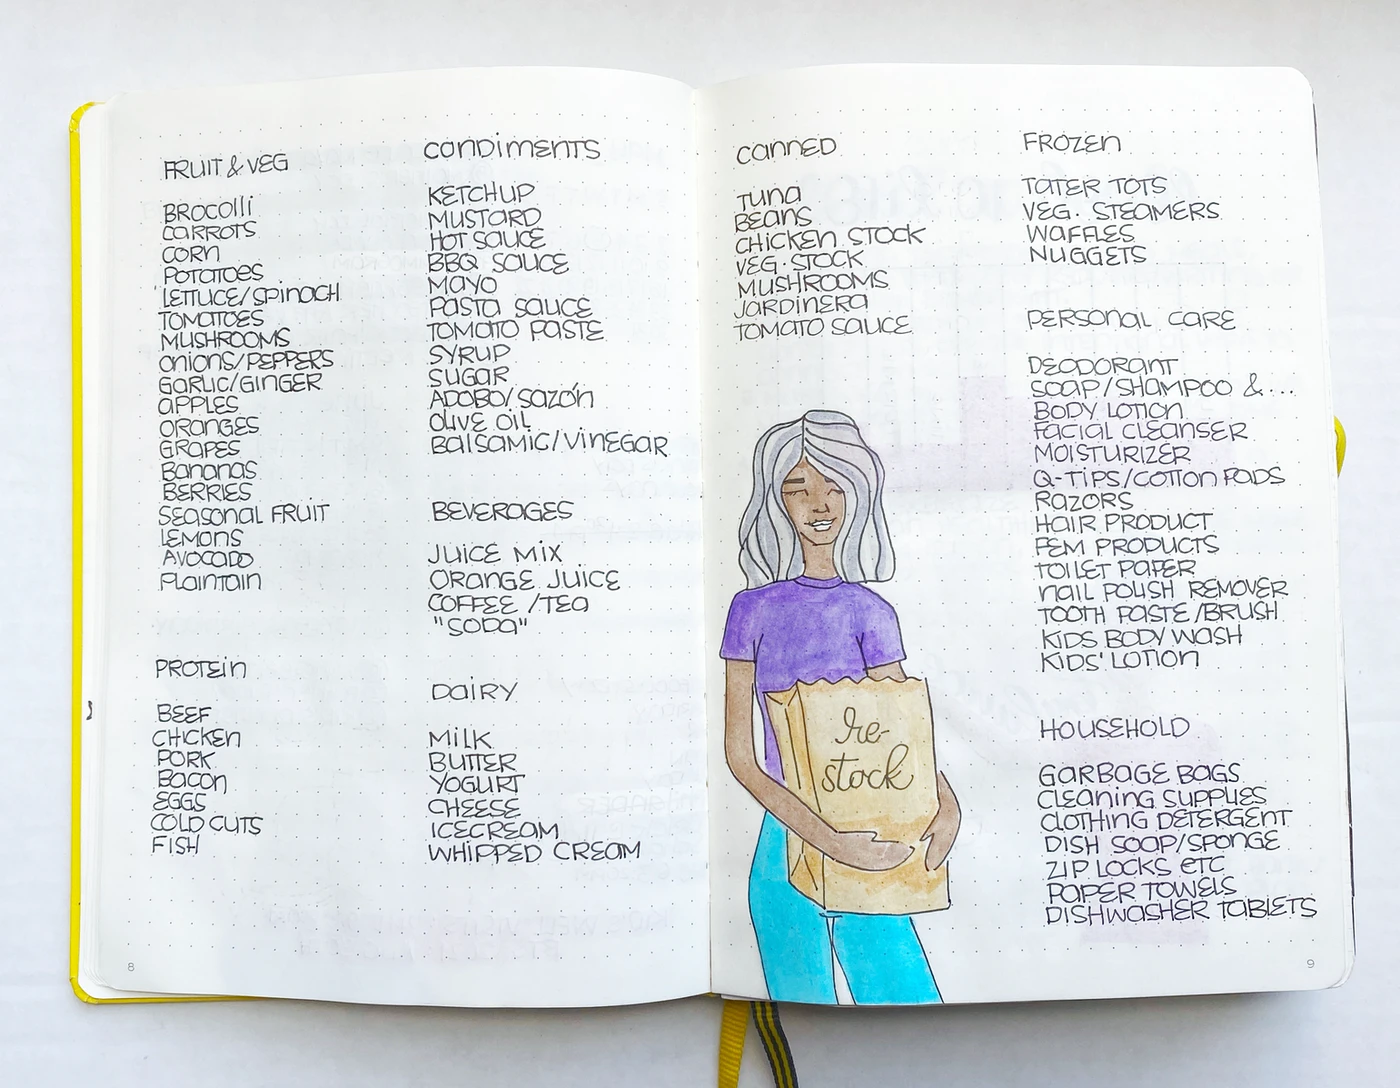 FRUIT & VEG
BROCOLLI
CARROTS
CORN
POTATOES
LETTUCE/SPINACH
TOMATOES
MUSHROOMS
ONIONS/PEPPERS
GARLIC/GINGER
APPLES
ORANGES
GRAPES
BANANAS
BERRIES
SEASONAL FRUIT
LEMONS
AVOCADO
PLAINTAIN
PROTEIN
BEEF
CHICKEN
PORK
BACON
EGGS
COLD CUTS
FISH
8
CONDIMENTS
KETCHUP
MUSTARD
HOT SAUCE
BBQ SAUCE
MAYO
PASTA SAUCE
TOMATO PASTE
SYRUP
SUGAR
ADOBO/SAZÓN
OLIVE OIL
BALSAMIC/VINEGAR
BEVERAGES
JUICE MIX
ORANGE JUICE
COFFEE /TEA
"SODA"
DAIRY
MILK
BUTTER
YOGURT
CHEESE
ICECREAM
WHIPPED CREAM
CANNED
TUNA
BEANS
CHICKEN STOCK
VEG. STOCK
MUSHROOMS
JARDINERA
TOMATO SAUCE
re-
stock
FROZEN
TATER TOTS
VEG. STEAMERS
WAFFLES
NUGGETS
PERSONAL CARE
DEODORANT
SOAP/SHAMPOO &...
BODY LOTION
FACIAL CLEANSER
MOISTURIZER
Q-TIPS/COTTON PADS
RAZORS
HAIR PRODUCT
FEM PRODUCTS
TOILET PAPER
NAIL POLISH REMOVER
TOOTH PASTE/BRUSH
KIDS BODY WASH
KIDS' LOTION
HOUSEHOLD
GARBAGE BAGS
CLEANING SUPPLIES
CLOTHING DETERGENT
DISH SOAP/SPONGE
ZIP LOCKS ETC
PAPER TOWELS
DISHWASHER TABLETS
9